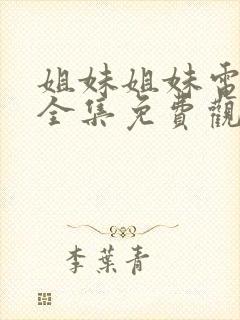 姐妹姐妹電
全集免費觀
李葉青